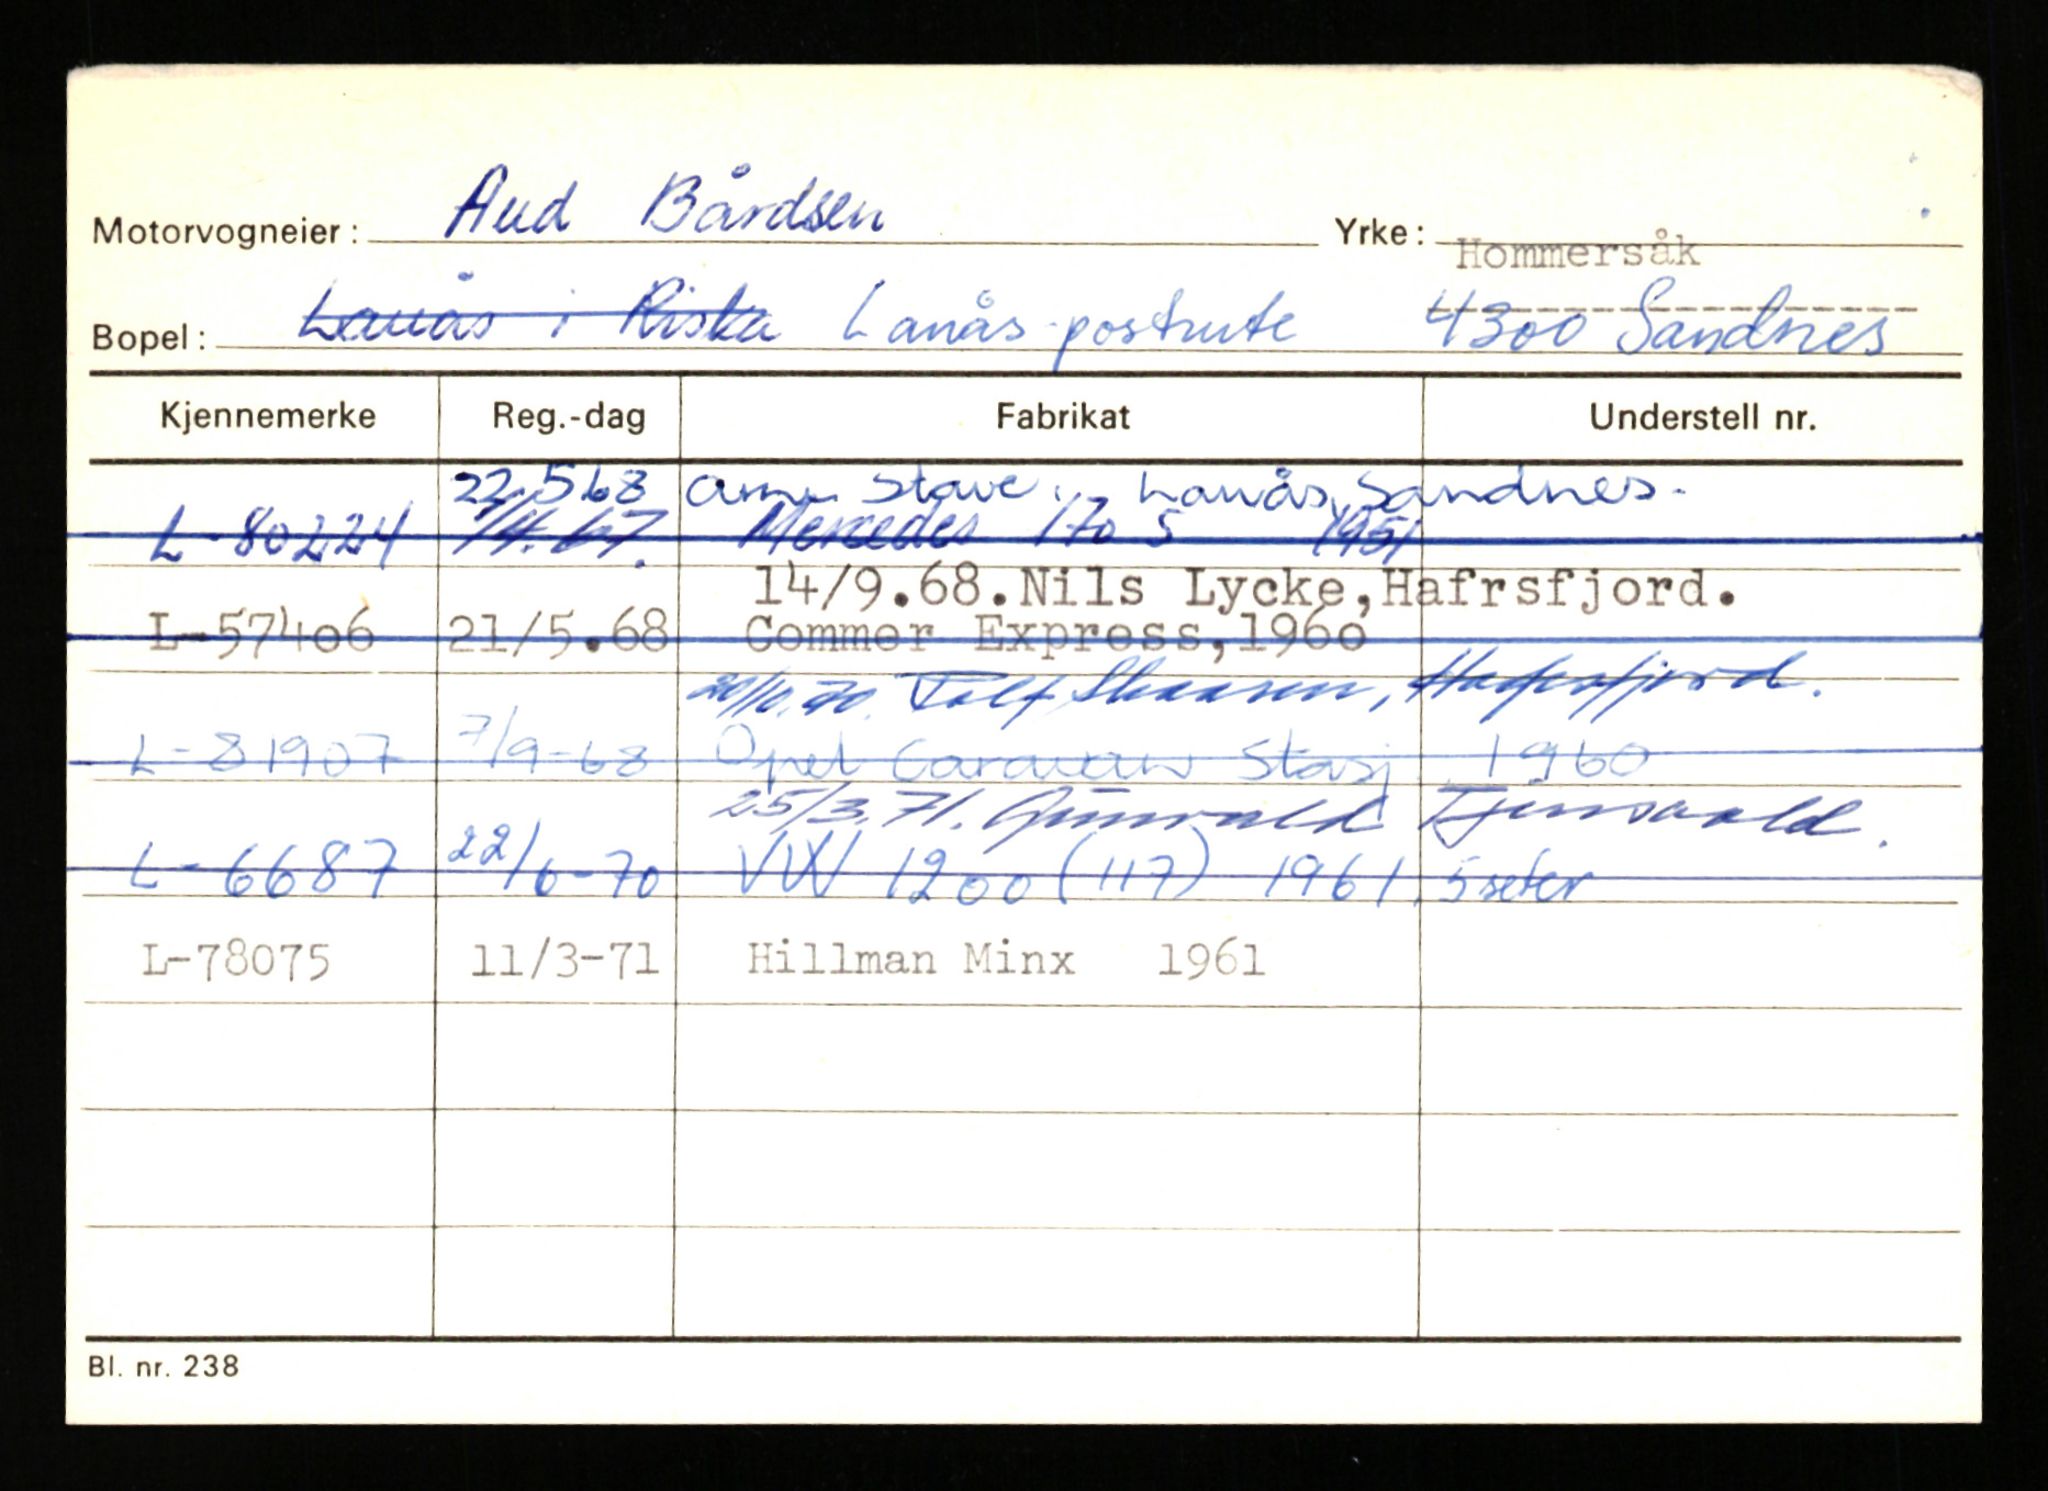 Motorvogneier: Aud Bårdsen Yrke:
Hommersåk
Bopel: Lanås i Riska Lanås postrute 4300 Sandnes
Kjennemerke Reg.-dag Fabrikat Understell nr.
22.5 68 Stave. Lanås, Sandnes.
L-80224 7/4.67. Mercedes 170 S 1951
14/9.68. Nils Lycke, Hafrsfjord.
L-57406 21/5.68 Commer Express, 1960
Hafrsfjord.
L-81907 7/9-68 Opel Caravan Stasj. 1960
25/3.71. Gunvald
L-6687 22/6-70 VW 1200 (117) 1961. 5 seter
L-78075 11/3-71 Hillman Minx 1961
Bl. nr. 238